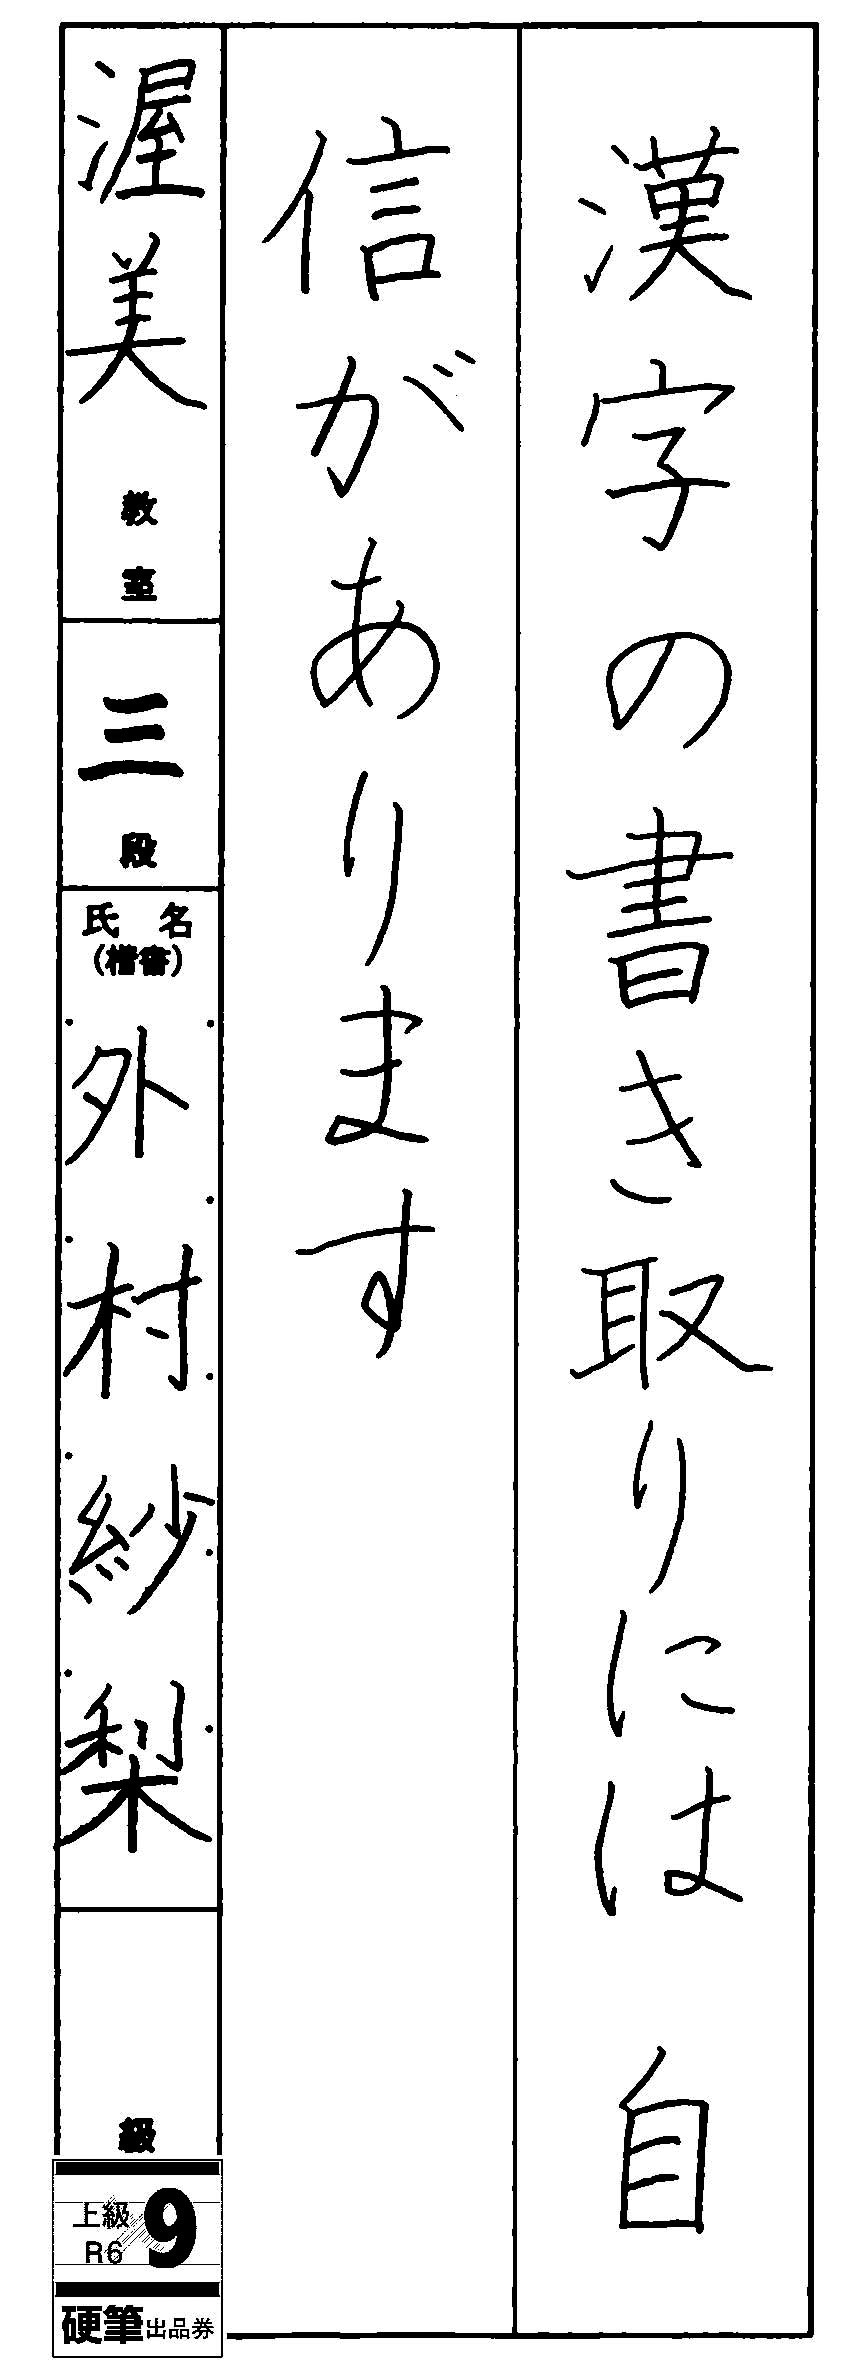 漢字の書き取りには 自
信があります
渥美 教室
三 段
氏名
(楷書)
外村紗梨
級
上級
R6
9
硬筆出品券